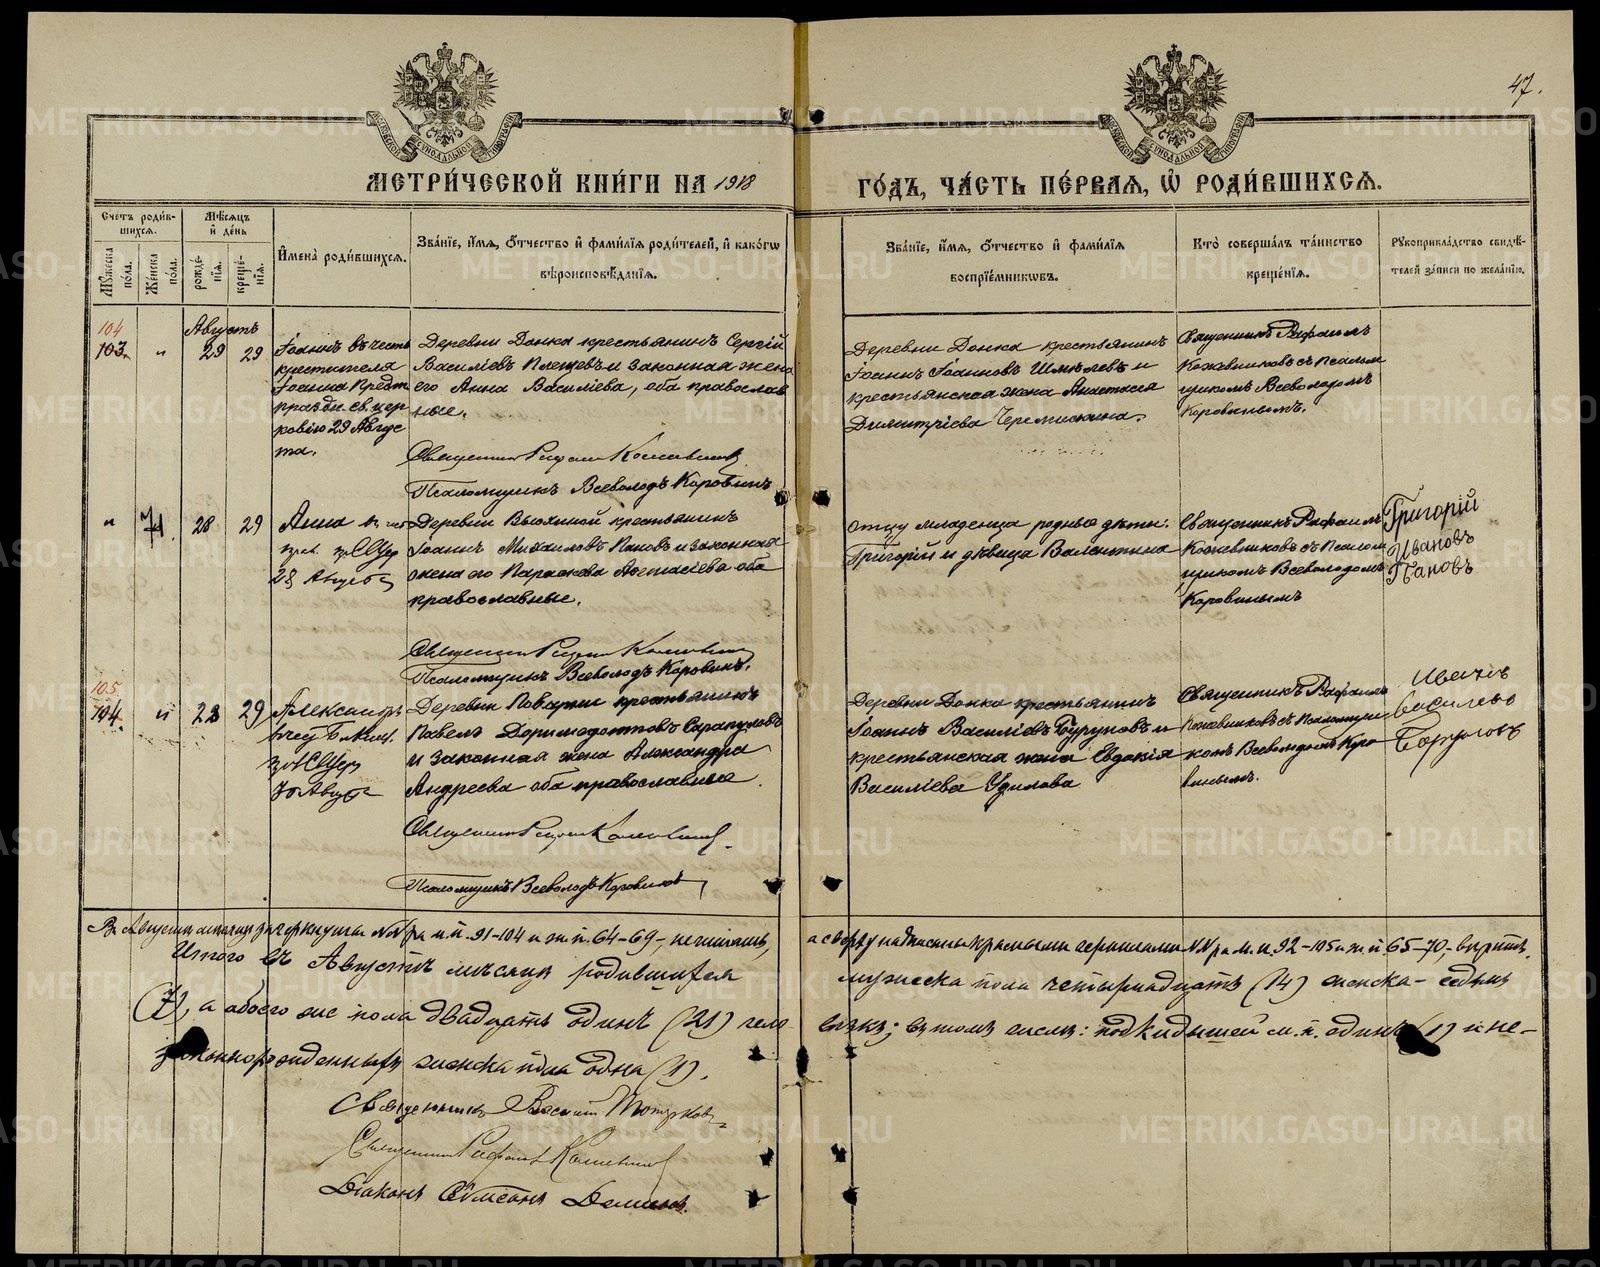 47.
МЕТРИ́ЧЕСКОЙ КНИ́ГИ НА 1918
ГО́ДЪ, ЧА́СТЬ ПЕ́РВАЯ, Ѡ РОДИ́ВШИХСЯ.
Счетъ роди́вшихся.
Мужеска пола.
Же́нска пола.
Мѣсяцъ и де́нь
рожде́нїя.
креще́нїя.
И҆мена̀ роди́вшихся.
Зва́нїе, и҆́мя, ѻ҆́тчество и҆ фами́лїя роди́телей, и҆ како́гѡ
вѣроисповѣ́данїя.
Зва́нїе, и҆́мя, ѻ҆́тчество и҆ фами́лїя
воспрїе́мникѡвъ.
Кто̀ соверша́лъ та́инство
креще́нїя.
Рꙋкоприкла́дство свидѣ́-
телей за́писи по жела́нїю.
Августъ
104
103.
"
29
29
Іоаннъ въ честь
крестителя
Іоанна Предт
праздн. св. цер
ковію 29 Авгус
та.
Деревни Донка крестьянинъ Сергій
Василіевъ Плещевъ и законная жена
его Анна Василіева, оба православ
ные.
Священникъ Рафаилъ Кожевниковъ
Псаломщикъ Всеволодъ Коровинъ
Деревни Донка крестьянинъ
Іоаннъ Іоанновъ Шмелевъ и
крестьянская жена Анастасія
Димитріева Черемискина.
Священникъ Рафаилъ
Кожевниковъ съ псалом
щикомъ Всеволодомъ
Коровинымъ.
"
28
29
Анна
28 Августа
Деревни Вьюхиной крестьянинъ
Іоаннъ Михаиловъ Пановъ и законная
жена его Параскева оба
православные.
Священникъ Рафаилъ Кожевниковъ
Псаломщикъ Всеволодъ Коровинъ.
Отцу младенца родные дѣти:
Григорій и дѣвица Валентина
Священникъ Рафаилъ
Кожевниковъ съ псалом
щикомъ Всеволодомъ
Коровинымъ
Григорій
Ивановъ
Пановъ
105.
104.
"
28
29
Александръ
30 Августа
Деревни крестьянинъ
Павелъ Доримедонтовъ Сарапуловъ
и законная жена Александра
Андреева оба православные.
Священникъ Рафаилъ Кожевниковъ.
Псаломщикъ Всеволодъ Коровинъ
Деревни Донка крестьянинъ
Іоаннъ Василіевъ Буруновъ и
крестьянская жена Евдокія
Василіева Удилова
Священникъ Рафаилъ
Кожевниковъ съ псаломщи
комъ Всеволодомъ Коро
винымъ.
Въ Августѣ мѣсяцѣ зачеркнутые №№ра м. п. 91-104 и ж. п. 64-69,- не читать,
а сверху надписанныя красными чернилами №№ра м. п. 92-105 и ж. п. 65-70,- вѣрить.
Итого въ Августѣ мѣсяцѣ родившихся
мужеска пола четырнадцать (14) женска - седмь
(7), а обоего же пола двадцать одинъ (21) чело-
вѣкъ; въ томъ числѣ: подкидышей м. п. одинъ (1) и не-
законнорожденныхъ женска пола одна (1).
Священникъ
Священникъ Рафаилъ Кожевниковъ
Діаконъ
METRIKI.GASO-URAL.RU